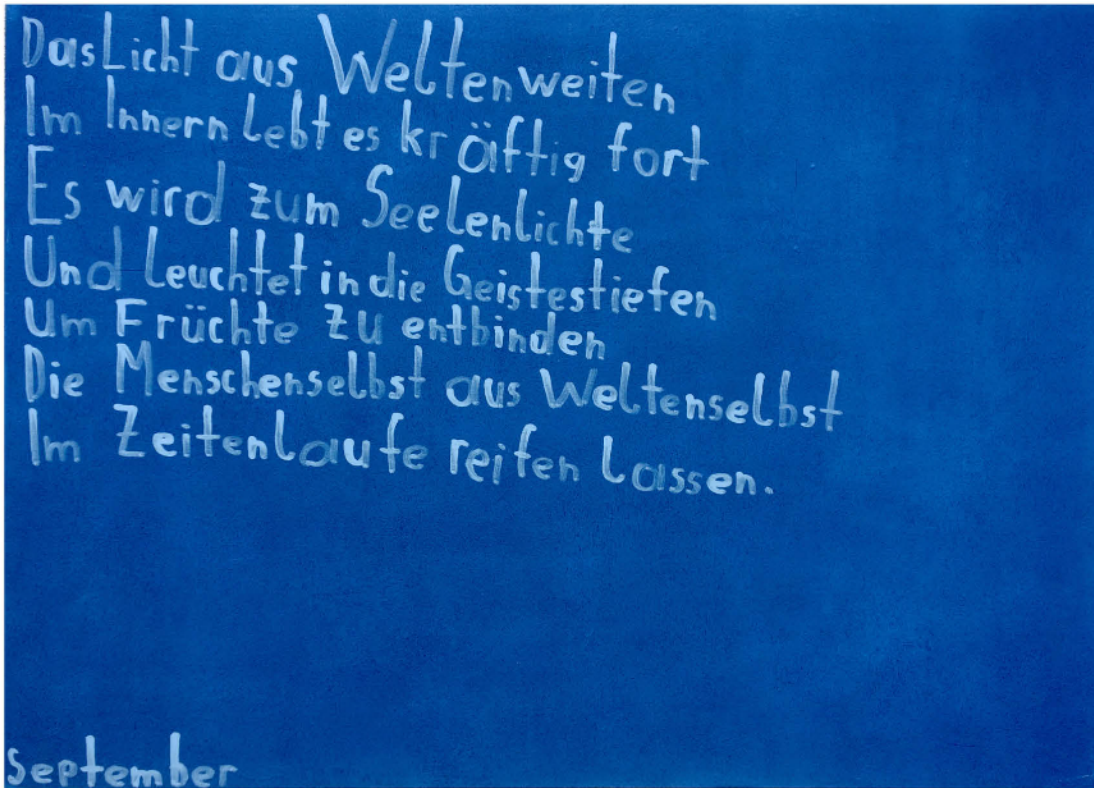 Das Licht aus Weltenweiten
Im Innern lebt es kräftig fort
Es wird zum Seelenlichte
Und leuchtet in die Geistestiefen
Um Früchte zu entbinden
Die Menschenselbst aus Weltenselbst
Im Zeitenlaufe reifen lassen.
September